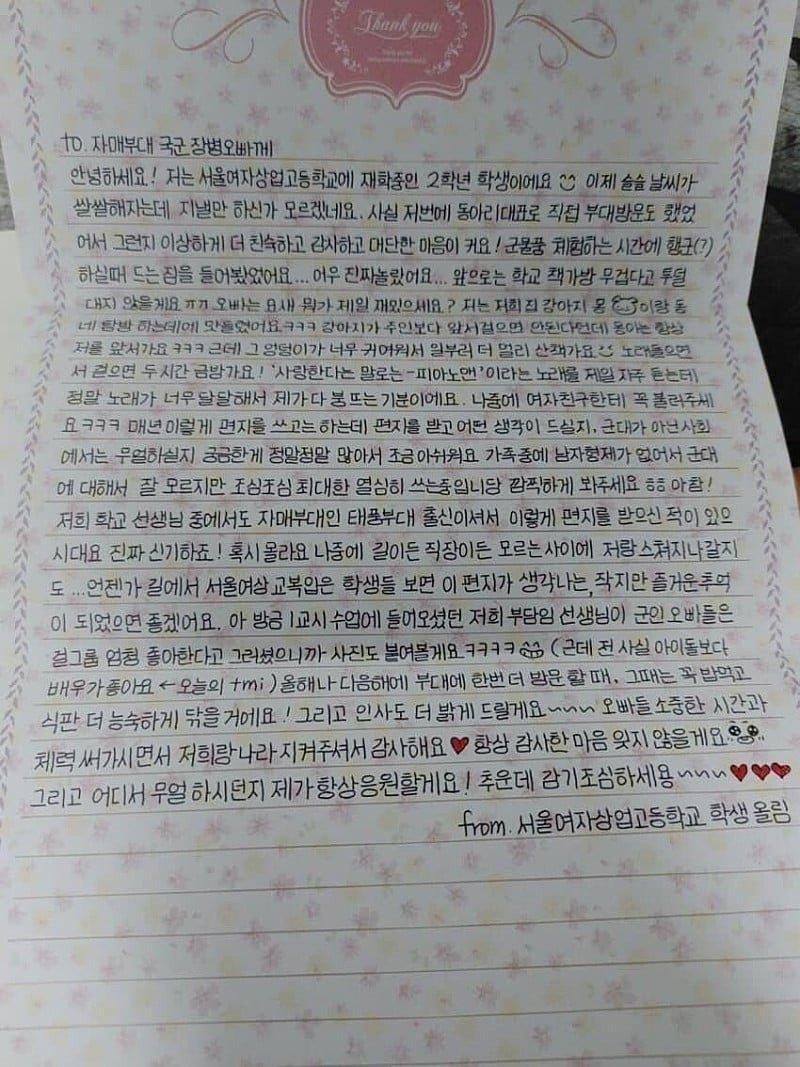 Thank you
to. 자매부대 국군 장병오빠께
안녕하세요! 저는 서울여자상업고등학교에 재학중인 2학년 학생이에요 이제 슬슬 날씨가
쌀쌀해지는데 지낼만 하신가 모르겠네요. 사실 저번에 동아리대표로 직접 부대방문도 했었
어서 그런지 이상하게 더 친숙하고 감사하고 대단한 마음이 커요! 군물품 체험하는 시간에 행군(?)
하실때 드는 짐을 들어봤었어요... 어우 진짜놀랐어요... 앞으로는 학교 책가방 무겁다고 투덜
대지 않을게요 ㄲㄲ 오빠는 요새 뭐가 제일 재밌으세요? 저는 저희집 강아지 몽이랑 동
네 탐방 하는데에 맛들렸어요ㅋㅋㅋ 강아지가 주인보다 앞서걸으면 안된다던데 몽이는 항상
저를 앞서가요ㅋㅋㅋ 근데 그 엉덩이가 너무 귀여워서 일부러 더 멀리 산책가요 노래들으면
서 걸으면 두시간 금방가요! '사랑한다는 말로는-피아노맨'이라는 노래를 제일 자주 듣는데
정말 노래가 너무 달달해서 제가 다 붕 뜨는 기분이에요. 나중에 여자친구한테 꼭 불러주세
요ㅋㅋㅋ 매년 이렇게 편지를 쓰고는 하는데 편지를 받고 어떤 생각이 드실지, 군대가 아닌 사회
에서는 무얼하실지 궁금한게 정말정말 많아서 조금 아쉬워요 가족중에 남자형제가 없어서 군대
에 대해서 잘 모르지만 조심조심 최대한 열심히 쓰는중입니당 깜찍하게 봐주세요 ㅎㅎ 아참!
저희 학교 선생님 중에서도 자매부대인 태풍부대 출신이셔서 이렇게 편지를 받으신 적이 있으
시대요 진짜 신기하죠! 혹시 몰라요 나중에 길이든 직장이든 모르는사이에 저랑 스쳐지나갈지
도 ...언젠가 길에서 서울여상 교복입은 학생들 보면 이 편지가 생각나는, 작지만 즐거운 추억
이 되었으면 좋겠어요. 아 방금 1교시 수업에 들어오셨던 저희 부담임 선생님이 군인 오빠들은
걸그룹 엄청 좋아한다고 그러셨으니까 사진도 붙여볼게요ㅋㅋㅋㅋ (근데 전 사실 아이돌보다
배우가좋아요 ← 오늘의 tmi) 올해나 다음해에 부대에 한번 더 방문 할 때, 그때는 꼭 밥먹고
식판 더 능숙하게 닦을 거에요! 그리고 인사도 더 밝게 드릴게요~~~ 오빠들 소중한 시간과
체력 써가시면서 저희랑 나라 지켜주셔서 감사해요♥ 항상 감사한 마음 잊지 않을게요
그리고 어디서 무얼 하시던지 제가 항상응원할게요! 추운데 감기조심하세용~~~♥♥♥
from. 서울여자상업고등학교 학생 올림